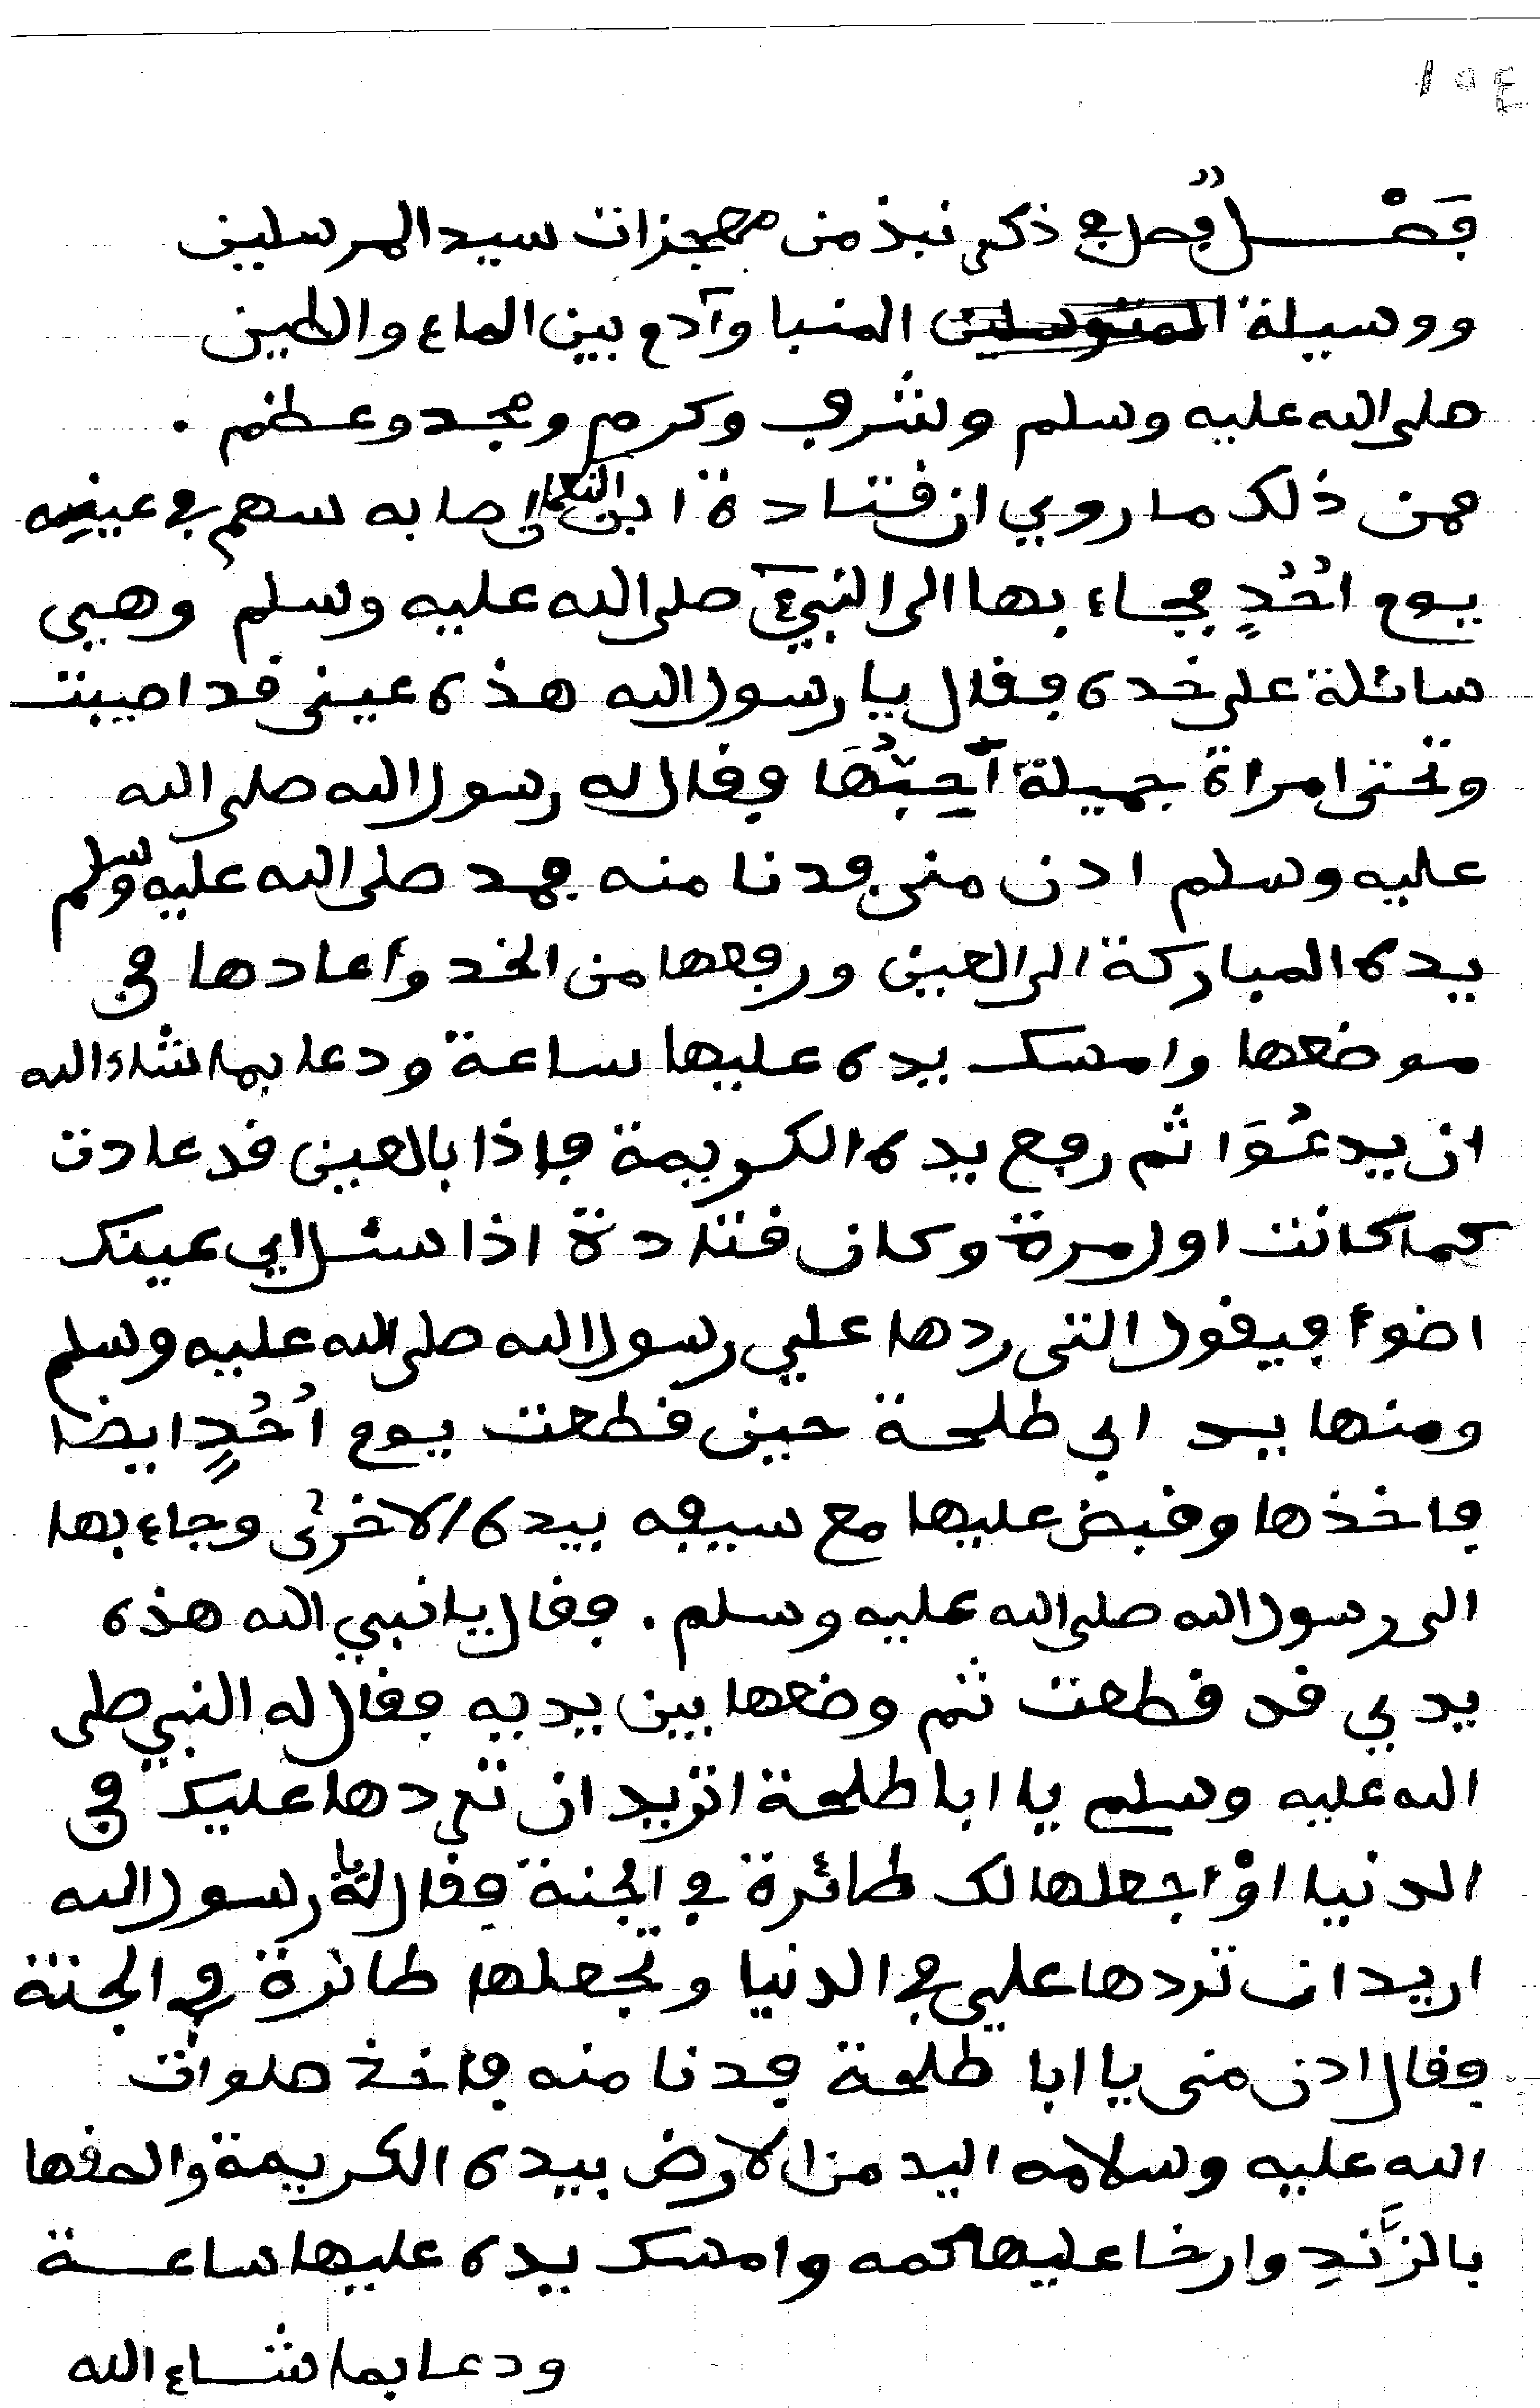 ١٥٤
فَصْــــل فصل في ذكر نبذ من معجزات سيد المرسلين
ووسيلة المتوسلين المنبا وآدم بين الماء والطين
صلى الله عليه وسلم وشرف وكرم ومجد وعظم .
فمن ذلك ما روي ان قتادة ابن النعمان اصابه سهم في عينيه
يوم احُدٍ فجاء بها الى النبيء صلى الله عليه وسلم وهي
سائلة على خده فقال يا رسول الله هذه عيني قد اصيبت
وتحتي امراة جميلة أحبُّهَا فقال له رسول الله صلى الله
عليه وسلم ادن مني فدنا منه فمد صلى الله عليه وسلم
يده المباركة الى العين ورفعها من الخد وأعادها في
موضعها وامسك يده عليها ساعة ودعا بما شاء الله
ان يدعُوَا ثم رفع يده الكريمة فإذا بالعين قد عادت
كما كانت اول مرة وكان قتادة اذا سئل اي عينك
اضوأ فيقول التي ردها علي رسول الله صلى الله عليه وسلم
ومنها يد ابي طلحة حين قطعت يوم اُحُدٍ ايضا
فاخذها وقبض عليها مع سيفه بيده الاخرى وجاء بها
الى رسول الله صلى الله عليه وسلم . فقال يا نبي الله هذه
يدي قد قطعت ثم وضعها بين يديه فقال له النبي صلى
الله عليه وسلم يا ابا طلحة اتريد ان نردها عليك في
الدنيا اوْ اجعلها لك طائرة في الجنة فقال له يا رسول الله
اريد ان تردها علي في الدنيا وتجعلها طائرة في الجنة
فقال ادن مني يا ابا طلحة فدنا منه فاخذ صلوات
الله عليه وسلامه اليد من الارض بيده الكريمة والصقها
بالزَّندِ وارخا عليها كمه وامسك يده عليها ساعــة
ودعا بما شاء الله